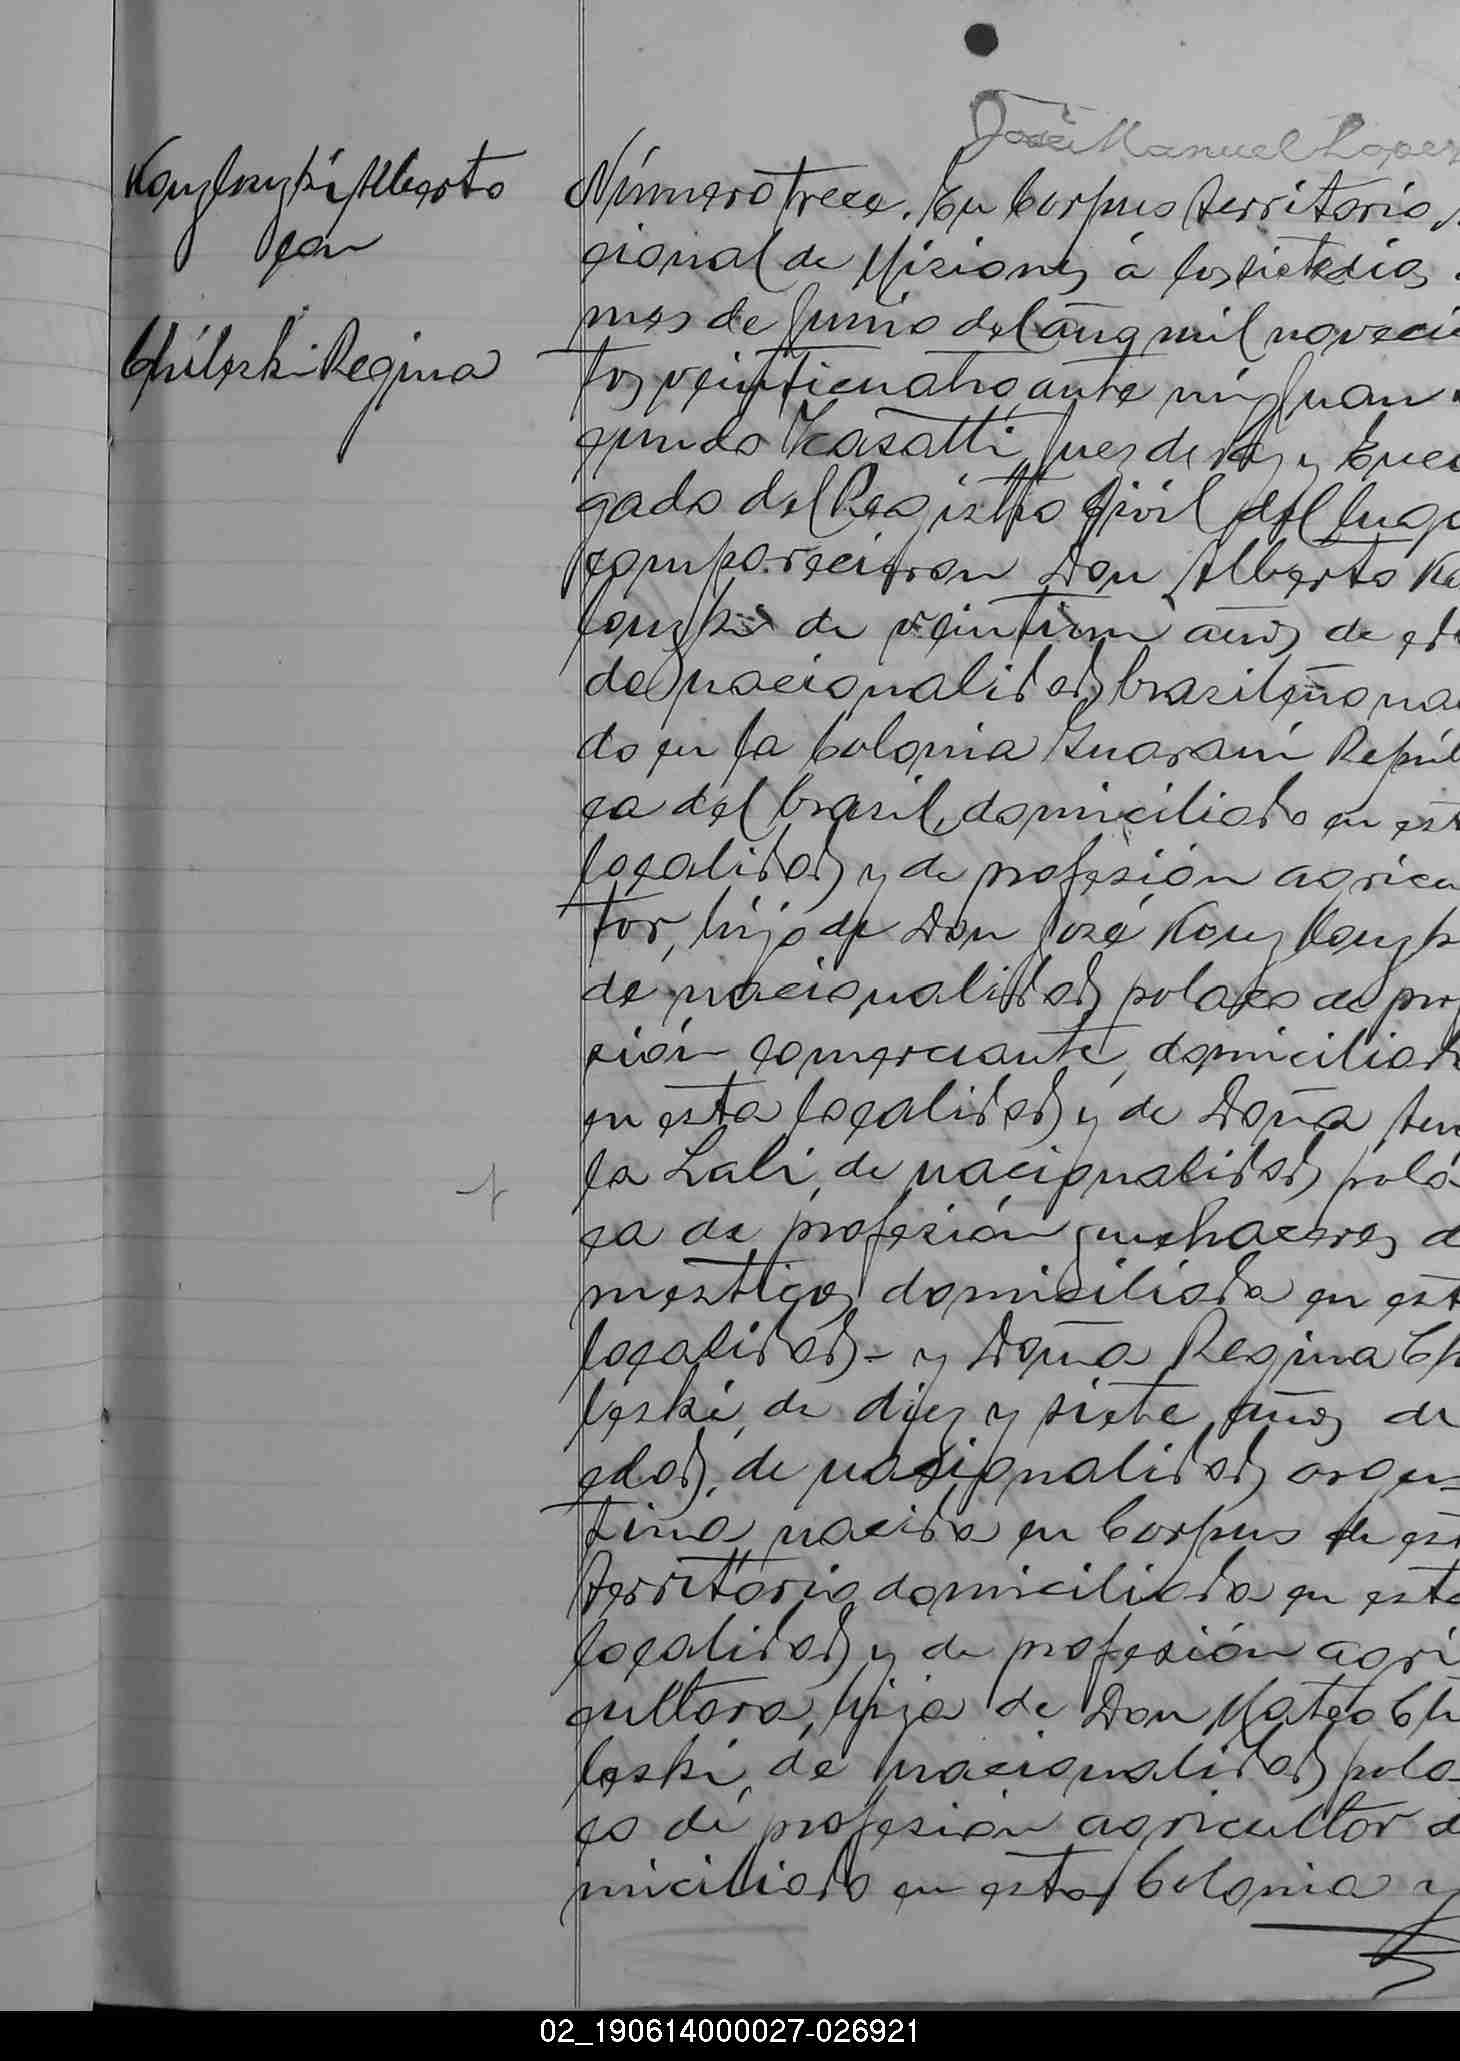 José Manuel Lopez
Konzlonzki Alberto
con
Chileski Regina
Número trece. En Corpus territorio
cional de Misiones á los siete dias
mes de Junio del año mil noveci
tos veinticuatro, ante mi Juan
gundo Casatti Juez de Paz y Enca
gado del Registro Civil del luga
comparecieron Don Alberto Ko
lonzki de veintiun años de eda
de nacionalidad brasileño na
do en la Colonia Guaraní Repúb
ca del Brasil, domiciliado en est
localidad y de profesión agricu
tor, hijo de Don José Konzlonzk
de nacionalidad polaco de prof
sión comerciante, domiciliado
en esta localidad y de Doña
la Lali, de nacionalidad pola
ca de profesión quehaceres d
mesticos domiciliada en est
localidad - y Doña Regina Ch
leski, de diez y siete años de
edad, de nacionalidad argen
tina nacida en Corpus de est
territorio domiciliada en esta
localidad y de profesión agri
cultora, hija de Don Mateo Chi
leski, de nacionalidad pola
co de profesión agricultor d
miciliado en esta Colonia y
02_190614000027-026921